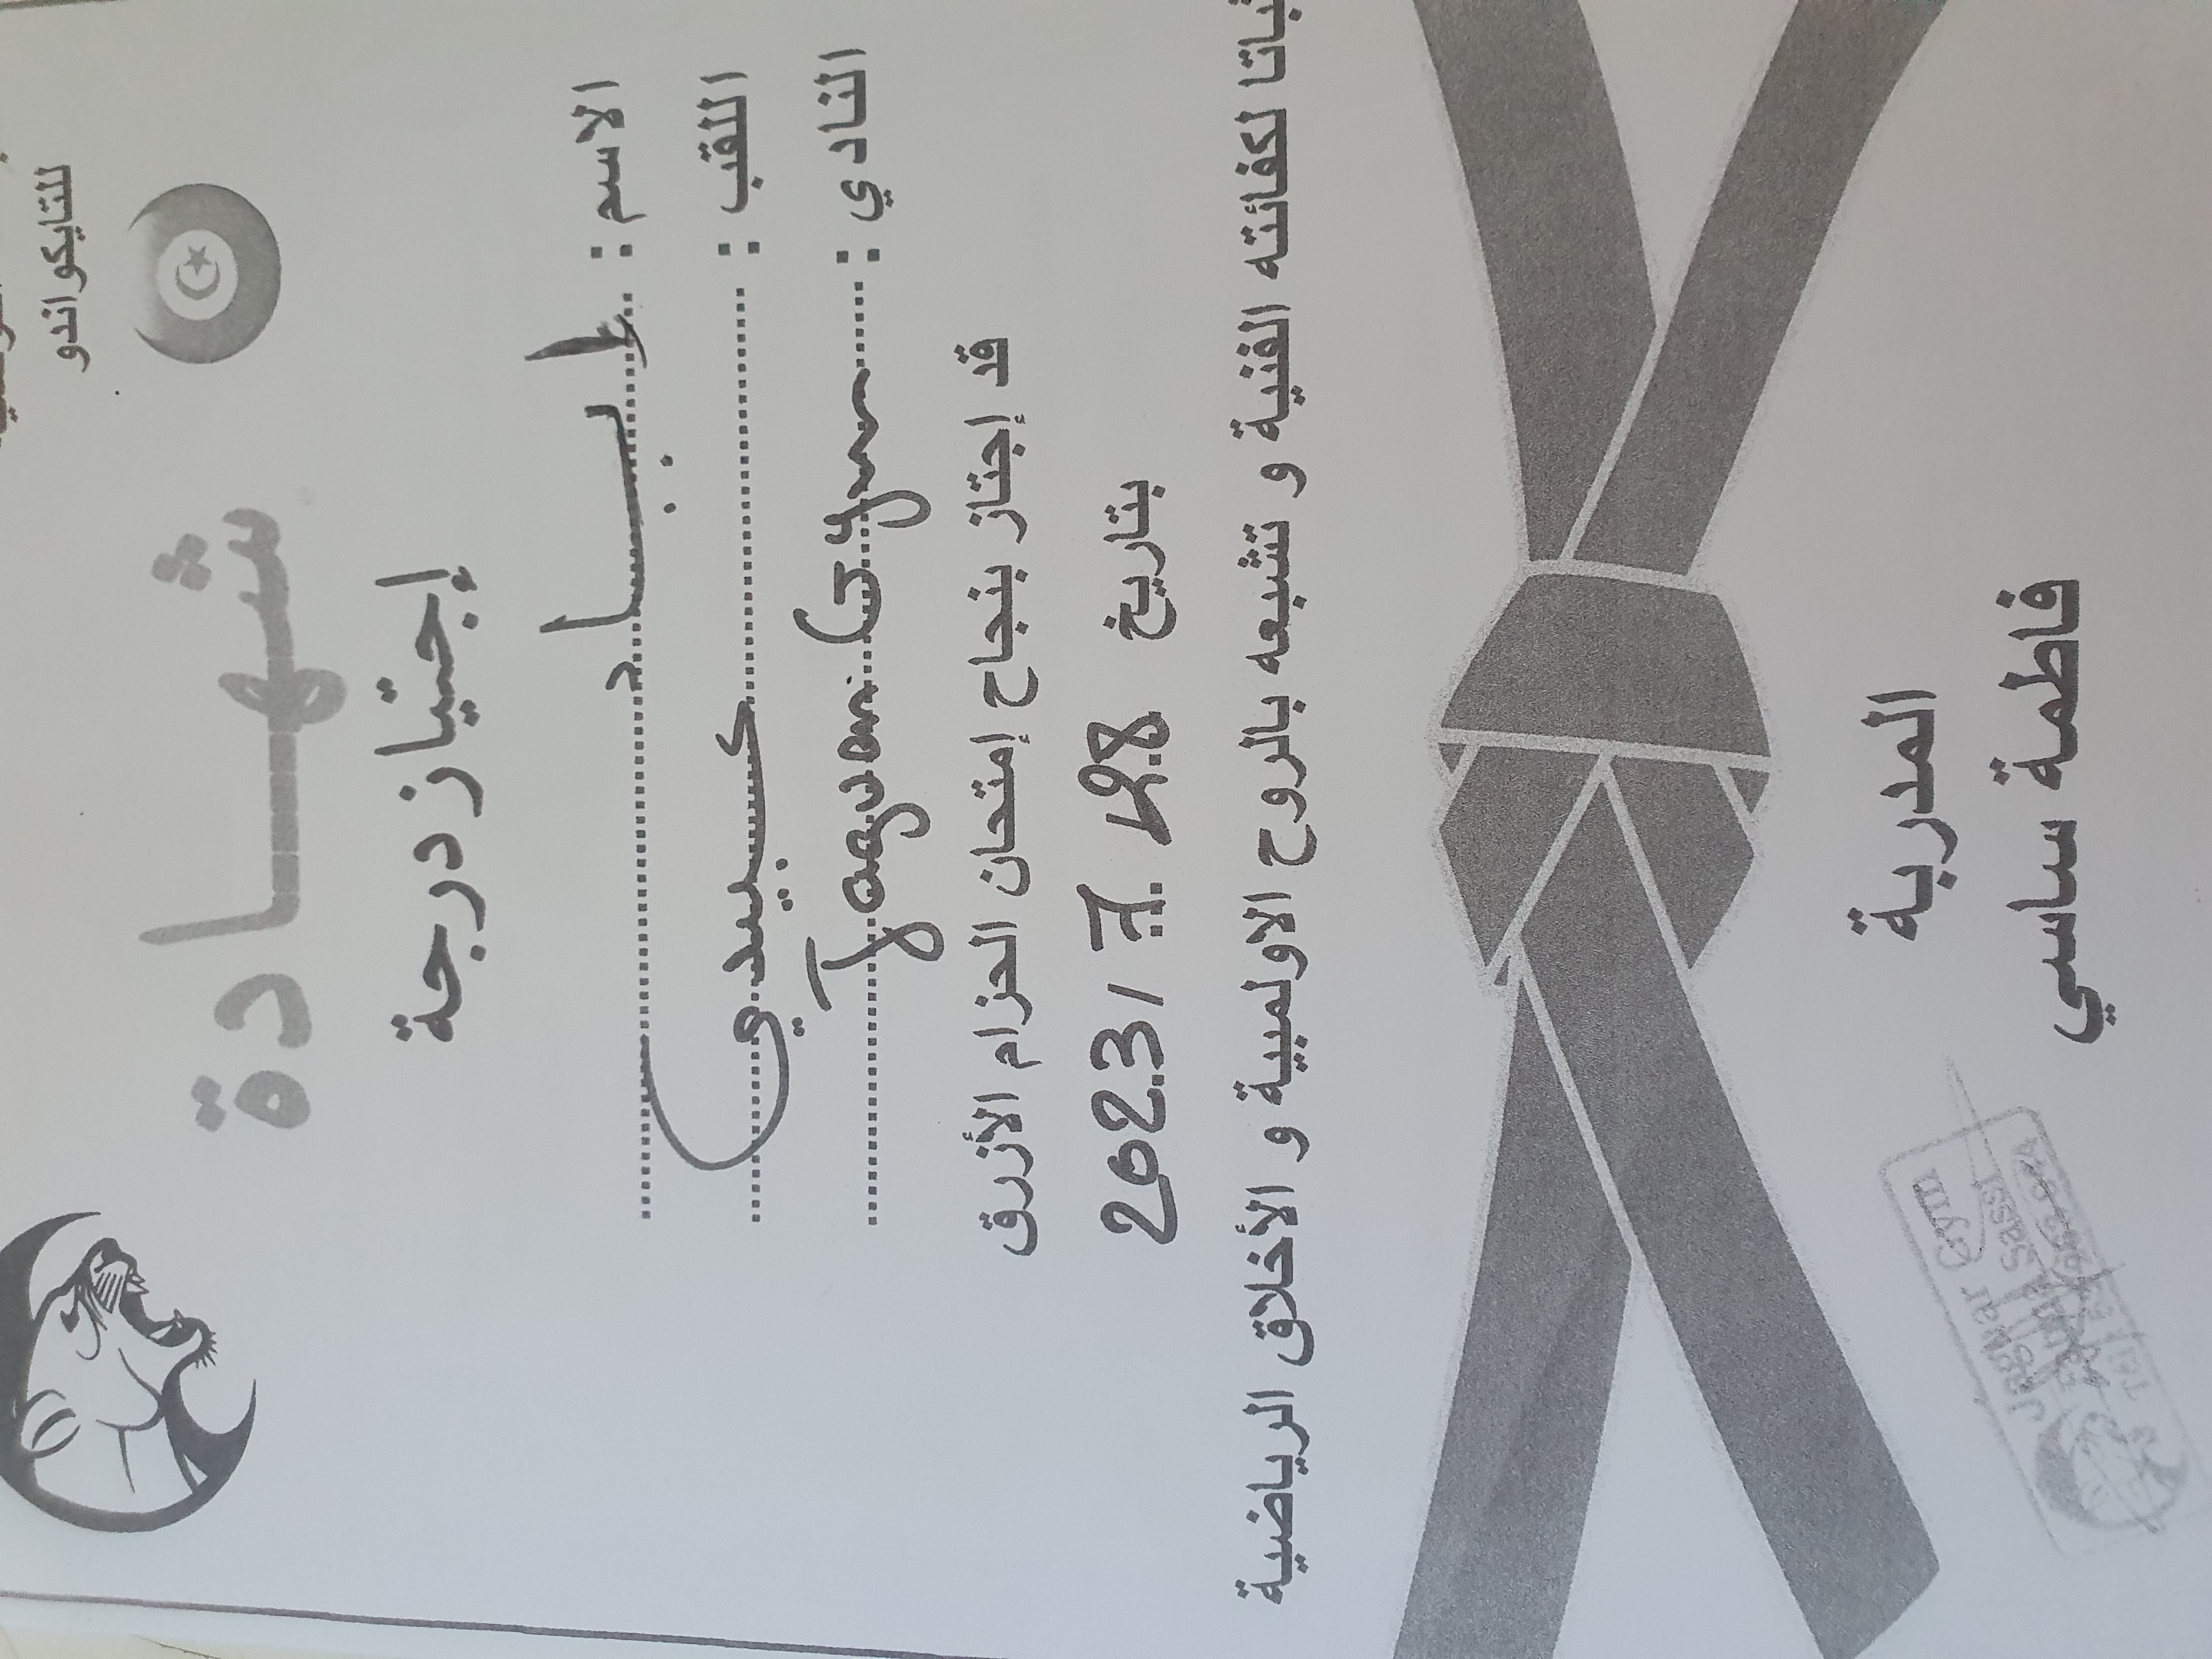 للتايكواندو
شهـــادة
إجتياز درجة
الاسم : إيـاد
اللقب : عبيدي
النادي : Jaguar Gym
قد إجتاز بنجاح إمتحان الحزام الأزرق
بتاريخ
لكفائته الفنية و تشبعه بالروح الاولمبية و الأخلاق الرياضية
المدربة
فاطمة ساسي
Jaguar Gym
Sassi